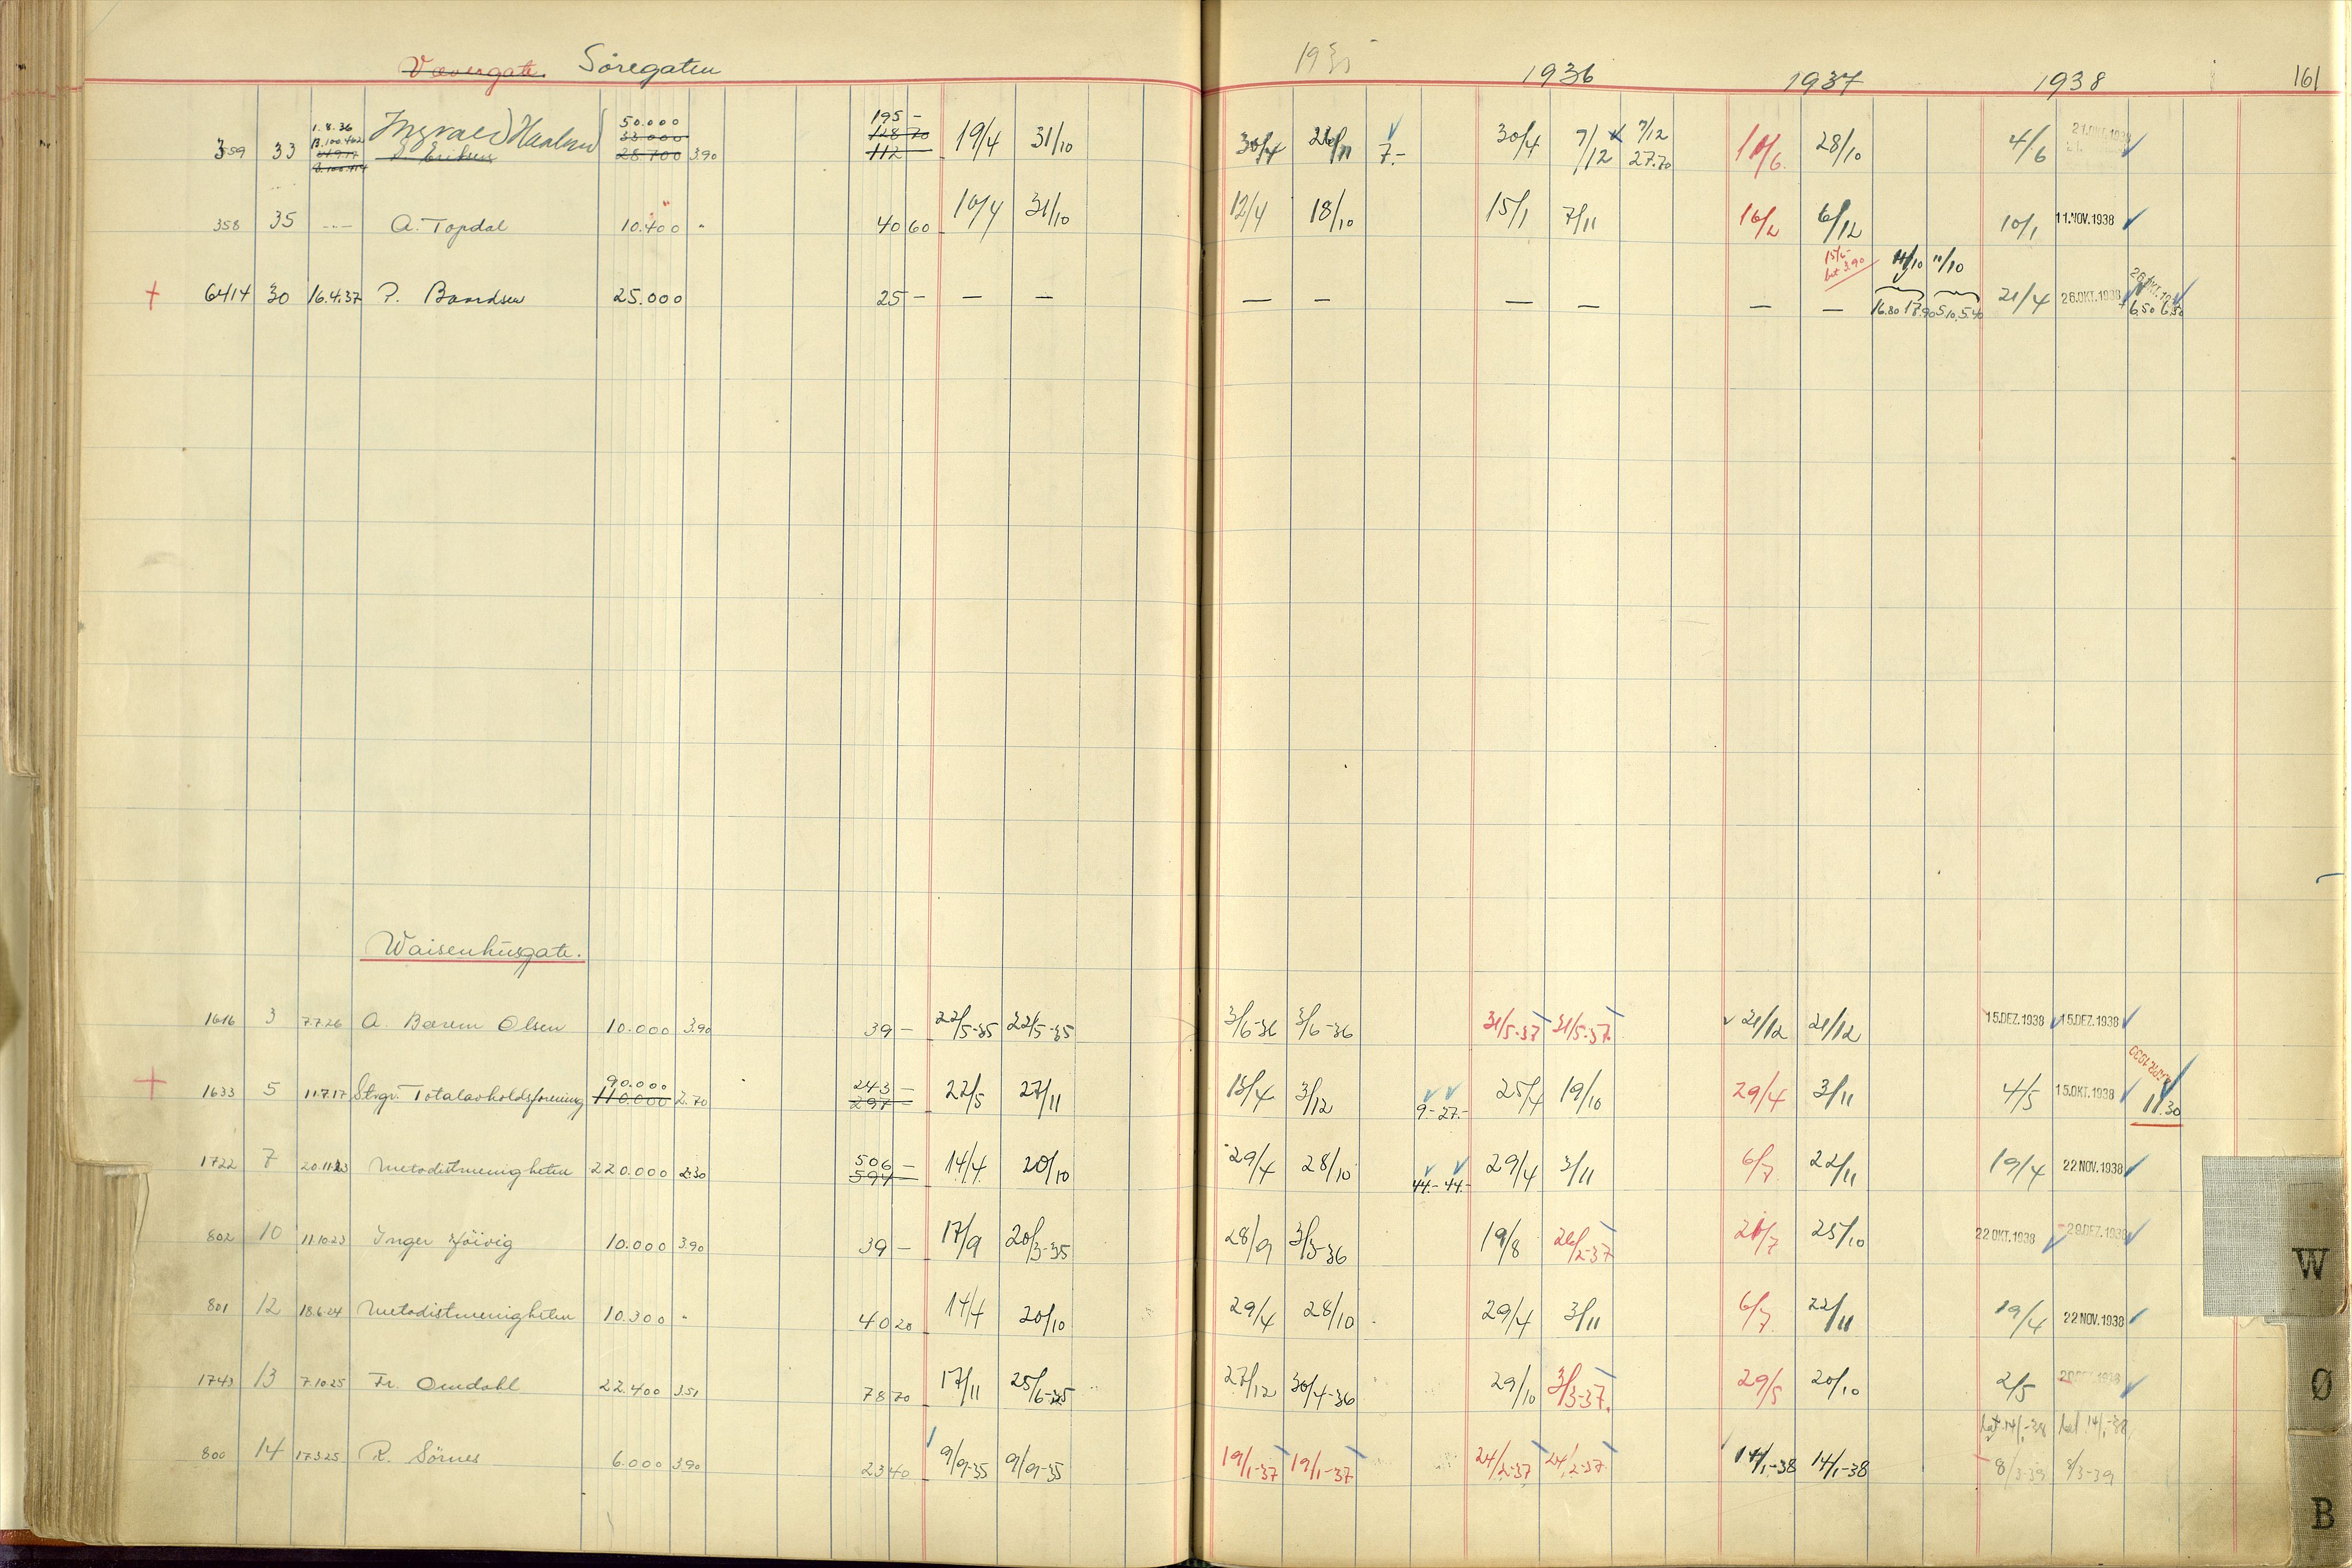 Søregaten 1936 1937 1938 161
1.8.36 50.000 195 -
B.100.402 33.000 128 70
359 33 28.700 3.90 112 19/4 31/10 30/4 26/11 7.- 30/4 7/12 7/12 27.70 10/6 28/10 4/6
358 35 --- A. Topdal 10.400 " 40 60 16/4 31/10 12/4 18/10 15/1 7/11 16/2 6/12 10/1 11.NOV.1938
15/6 3.90 11/10 11/10
6414 30 16.4.37 P. Bandsen 25.000 25 - - - - - - - - - 16.80 17.90 5.10 5.40 21/4 26.OKT.1938 26.OKT. 6.50 6.50
Waisenhusgate.
1616 3 7.7.26 A. Bærem Olsen 10.000 3.90 39 - 22/5-35 22/5-35 3/6-36 3/6-36 31/5-37 31/5-37 21/12 21/12 15.DEZ.1938 15.DEZ.1938
90.000 243 -
1633 5 11.7.17 Stvgr. Totalavholdsforening 110.000 2.70 297 - 22/5 27/11 15/4 3/12 9.- 27.- 25/4 19/10 29/4 3/11 4/5 15.OKT.1938 11.30
506 -
1722 7 20.11.23 Metodistmenigheten 220.000 2.30 594 - 14/4 20/10 29/4 28/10 44.- 44.- 29/4 3/11 6/7 22/11 19/4 22 NOV.1938
802 10 11.10.23 Inger Høivig 10.000 3.90 39 - 17/9 20/3-35 28/9 3/3-36 19/8 26/2-37 20/7 25/10 22 OKT.1938 29.DEZ.1938
801 12 18.6.24 Metodistmenigheten 10.300 " 40 20 14/4 20/10 29/4 28/10 29/4 3/11 6/7 22/11 19/4 22 NOV.1938
1743 13 7.10.25 Fr. Omdahl 22.400 3.51 78 70 17/11 25/6-35 27/12 30/4-36 29/10 3/3-37 29/5 20/10 2/5
14/1-38 14/1-38
800 14 17.3.25 R. Sörnes 6.000 3.90 23 40 9/9-35 9/9-35 19/1-37 19/1-37 24/2-37 24/2-37 14/1-38 14/1-38 8/3-39 8/3-39
W
Ø
B